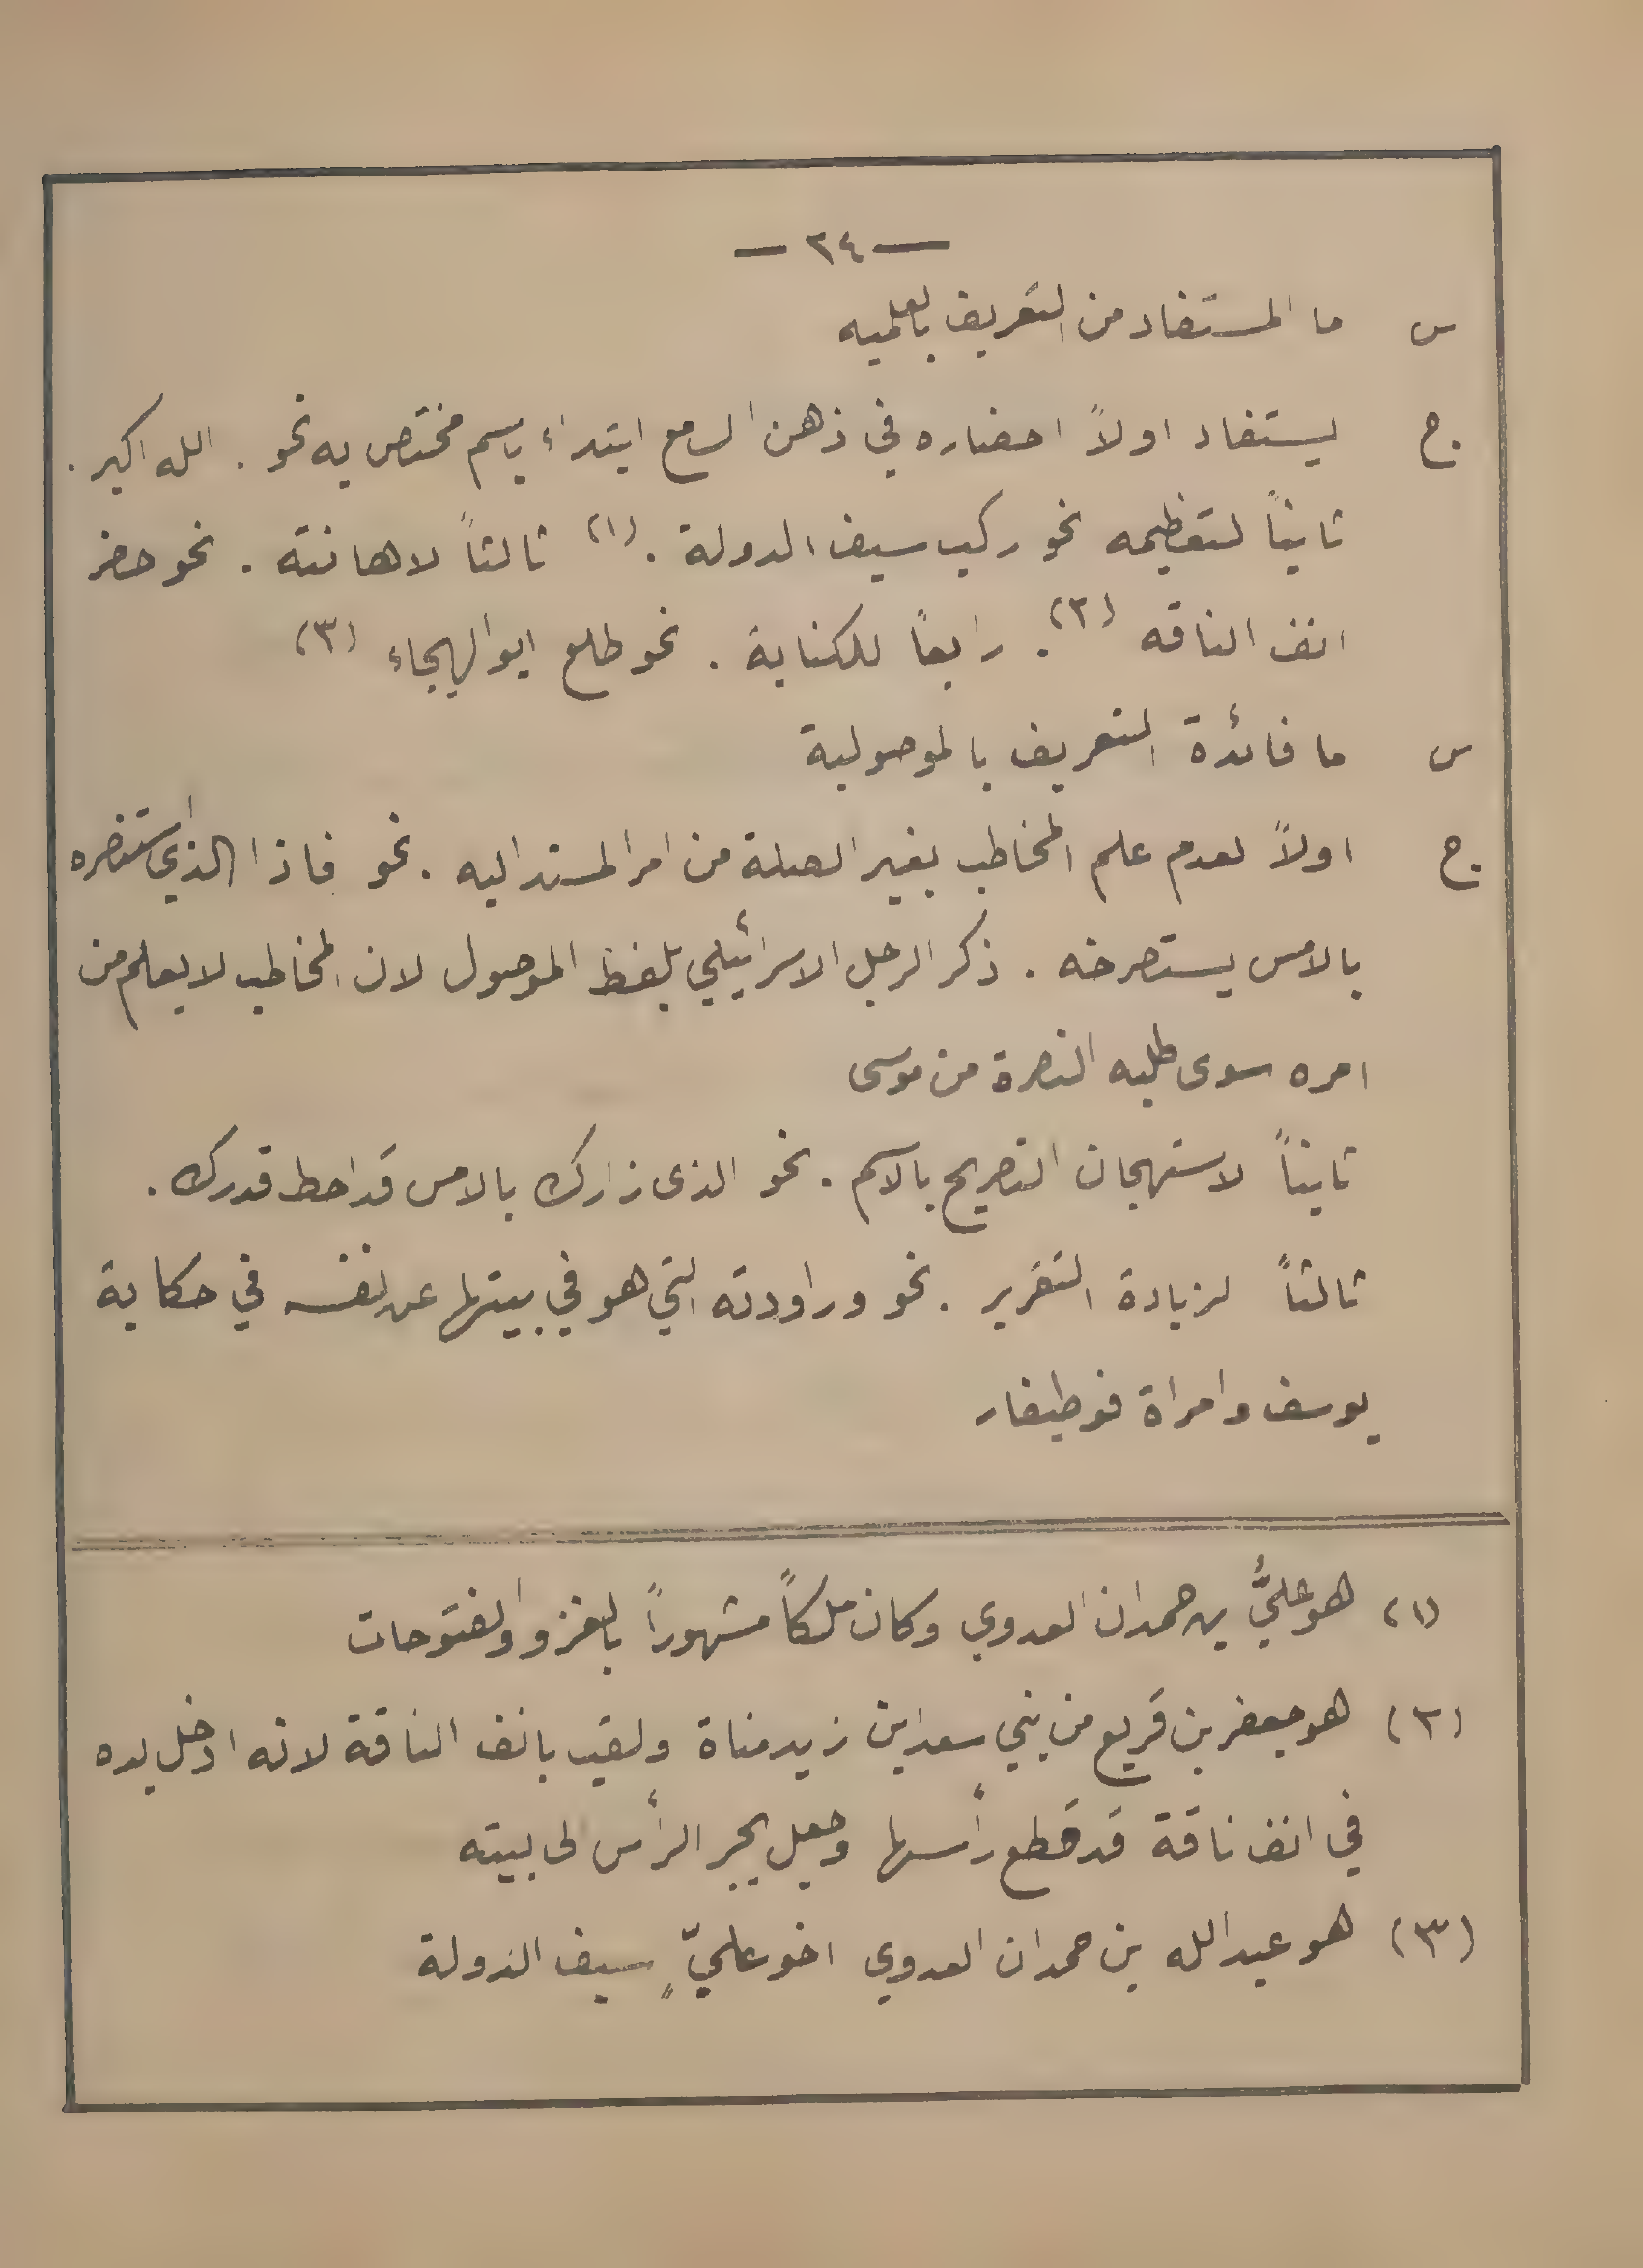 — ٣٤ —
س ما المستفاد من التعريف بالعلميه
ج يستفاد اولاً احضاره في ذهن السامع ابتداء باسم مختص به نحو . الله اكبر .
ثانيًا لتعظيمه نحو ركب سيف الدولة . (١) ثالثاً لاهانته . نحو حضر
انف الناقه (٢) . رابعاً للكناية . نحو طلع ابو الهيجاء (٣)
س ما فائدة التعريف بالموصولية
ج اولاً لعدم علم المخاطب بغير الصلة من امر المسند اليه . نحو فاذا الذي استنصره
بالامس يستصرخه . ذكر الرجل الاسرائيلي بلفظ الموصول لان المخاطب لا يعلم من
امره سوى طلبه النصرة من موسى
ثانيًا لاستهجان التصريح بالاسم . نحو الذى زارك بالامس قد احط قدرك .
ثالثاً لزيادة التقرير . نحو وراودته التي هو في بيتها عن نفسه في حكاية
يوسف وامراة فوطيفار
(١) هو عليُّ بن حمدان العدوي وكان ملكاً مشهوراً بالغزو والفتوحات
(٢) هو جعفر بن قريع من بني سعد ابن زيد مناة ولقب بانف الناقة لانه ادخل يده
في انف ناقة قد قطع رأسها وجعل يجر الرأس الى بيته
(٣) هو عبد الله بن حمدان العدوي اخو عليٍّ سيف الدولة